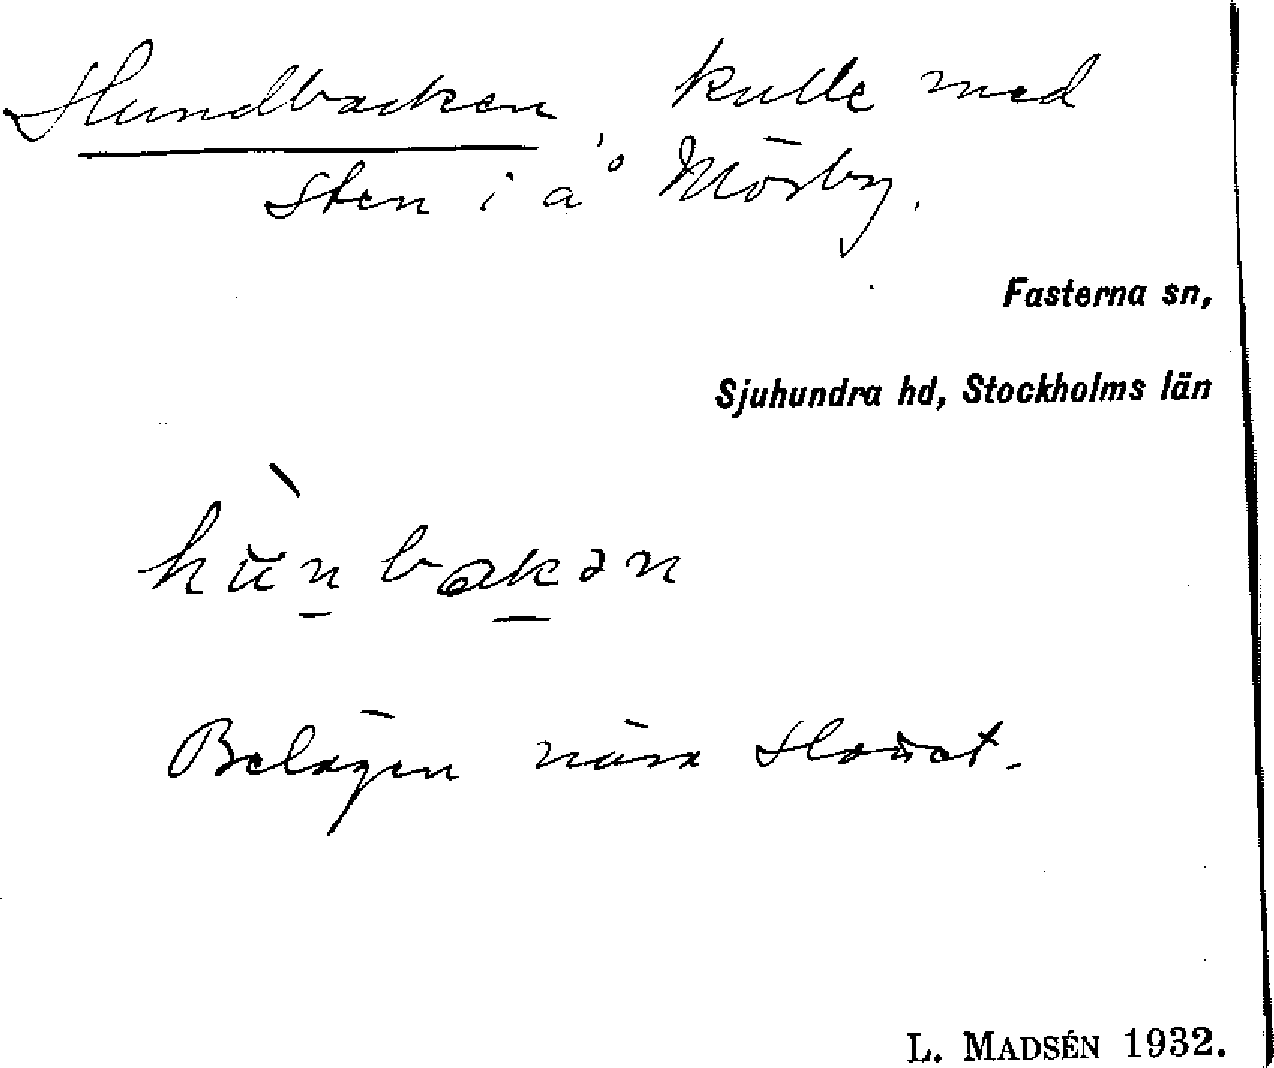 Hundbacken, kulle med
sten i å Mörby.
Fasterna sn,
Sjuhundra hd, Stockholms län
hùnbakən
Belägen nära slottet.
L. MADSÉN 1932.